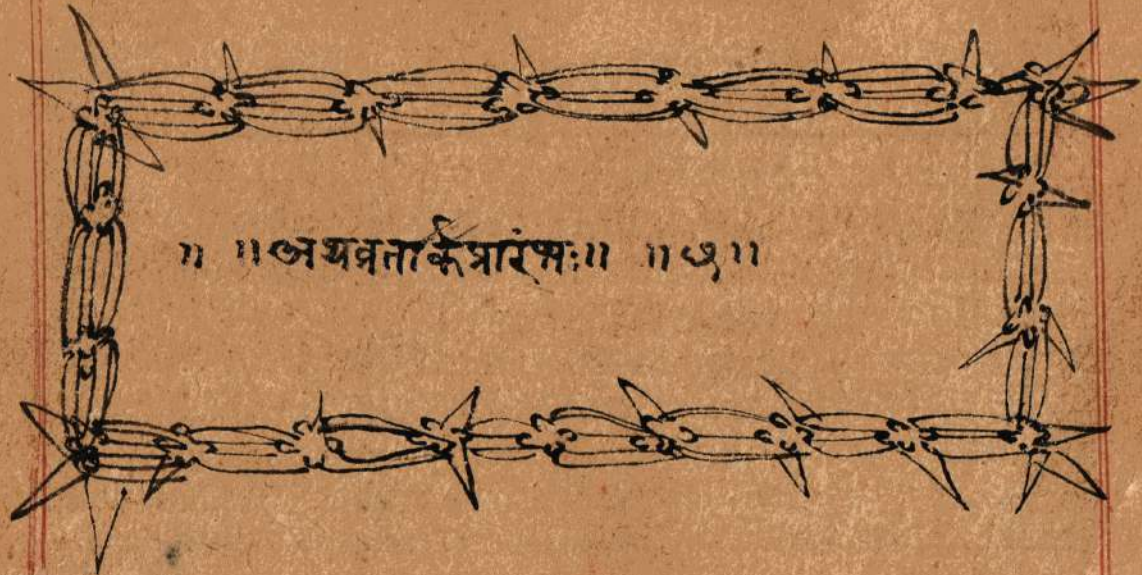 ॥ ॥अथव्रतार्कप्रारंभः॥ ॥छ॥